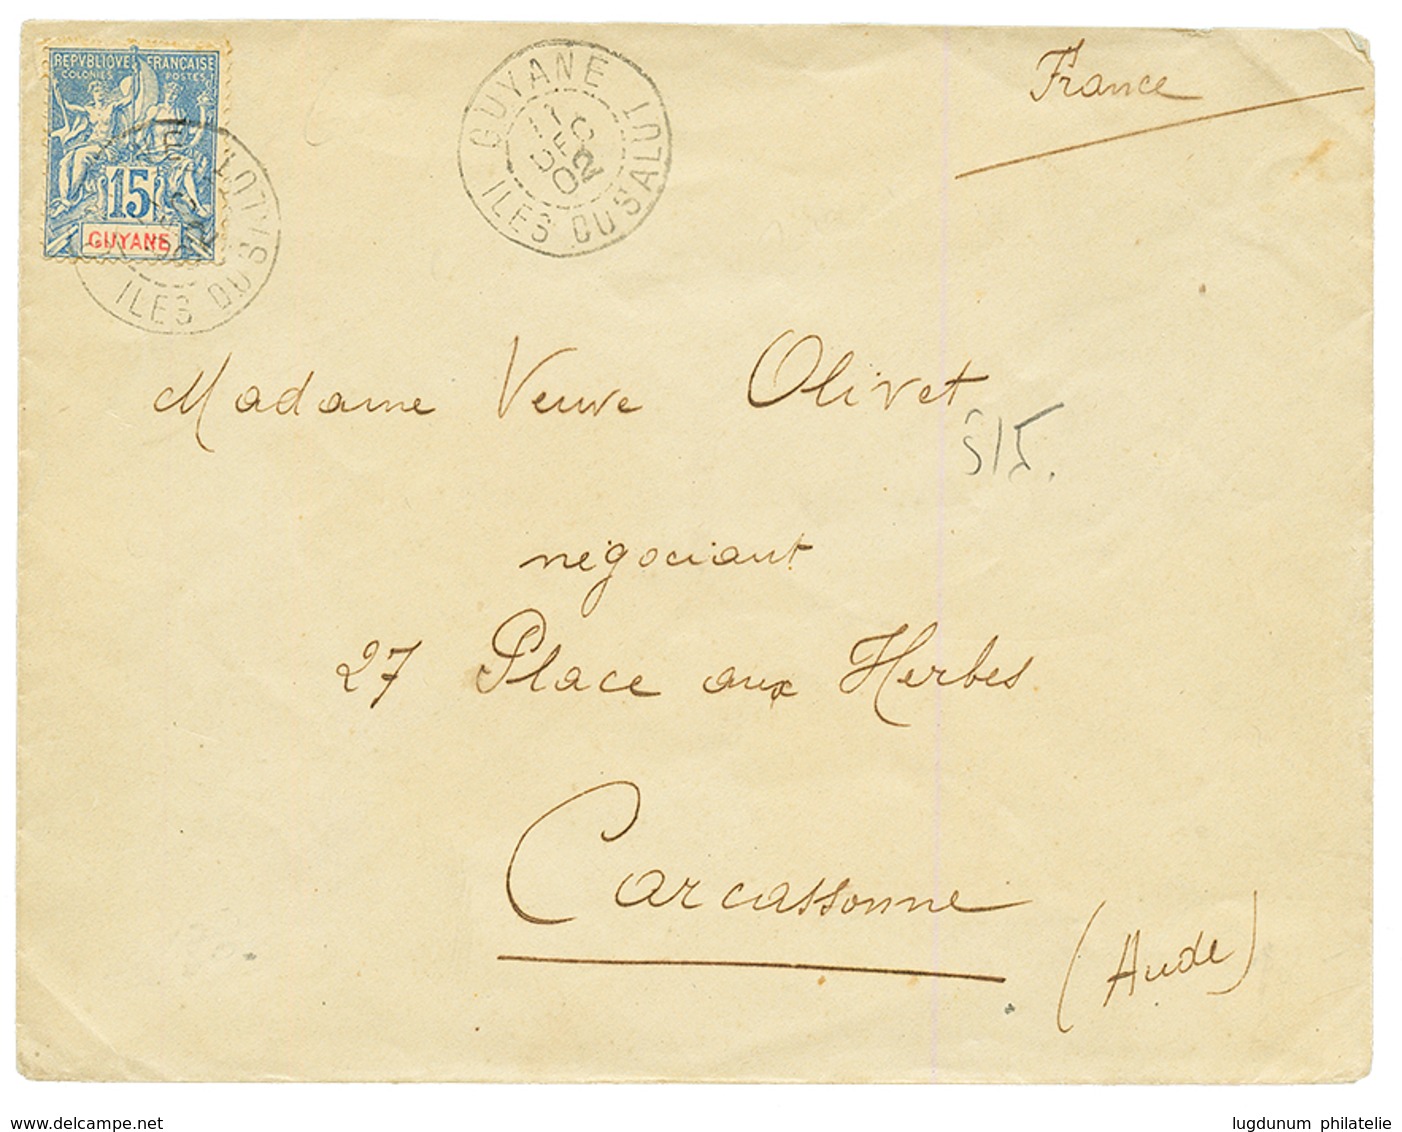 REPVBLIQVE FRANÇAISE
COLONIES POSTES
15
GUYANE
ILES DU SALUT
GUYANE
11
DEC
02
ILES DU SALUT
France
Madame Veuve Olivet
515.
négociant
27 Place aux Herbes
Carcassonne
(Aude)
www.delcampe.net
lugdunum philatelie